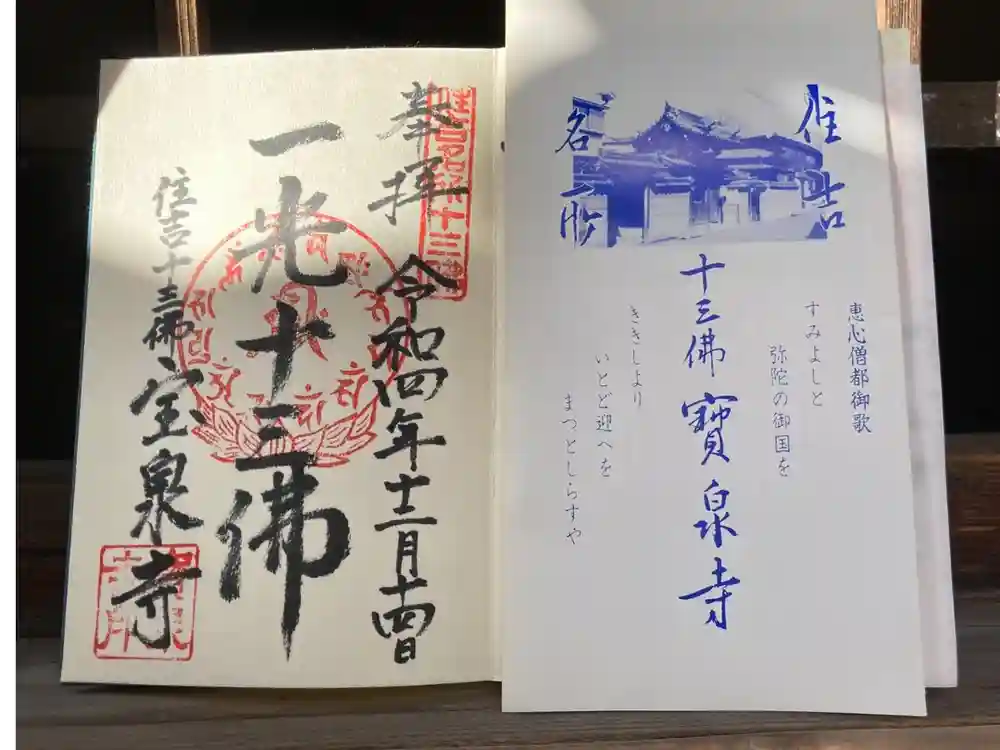 奉拝
令和四年十二月十四日
一光十三佛
住吉十三佛宝泉寺
住吉名所十三佛
住吉
名所
十三佛寶泉寺
恵心僧都御歌
すみよしと
弥陀の御国を
ききしより
いとど迎へを
まつとしらすや